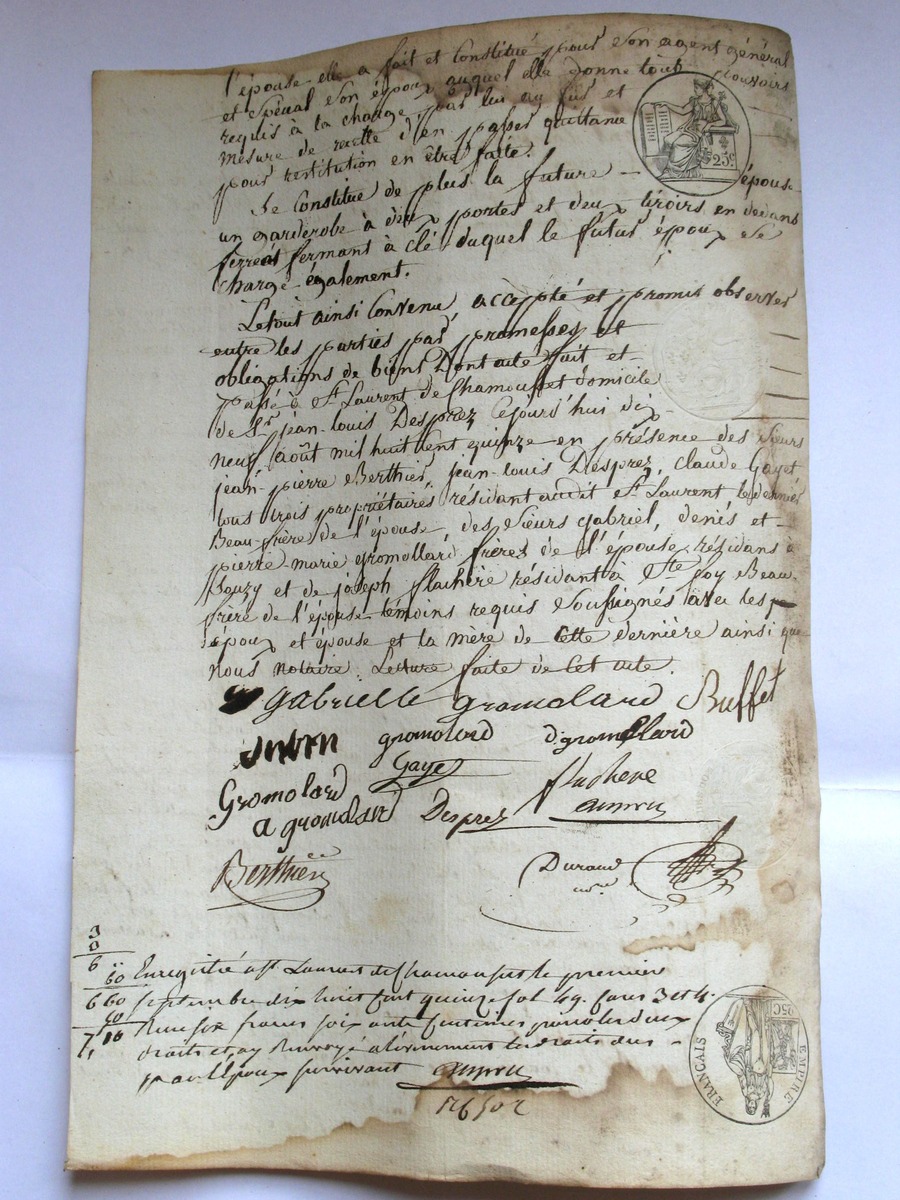 l'épouse elle a fait et Constitué pour son agent général
et spécial son époux auquel elle donne tout pouvoirs
requis à la charge par lui au fur et
mesure de recette d'en passer quittance
pour restitution en être faite.
25c
Se Constitue de plus la future épouse
un garderobe à deux portes et deux tiroirs en dedans
ferrée fermant à clé duquel le futur époux se
charge également.
Letout ainsi Convenu, accepté et promis observer
entre les parties par promesses et
obligations de biens Dont acte fait et
passé à St Laurent de Chamousset domicile
de Sr jean-louis Desprez Cejourd'hui dix
neuf août mil huit cent quinze en présence des Sieurs
jean-pierre Berthier, jean-louis Desprez, claude Gayet
tous trois propriétaires résidant audit St Laurent le dernier
Beau-frère de l'épouse, des Sieurs gabriel, denis et
pierre marie gromollard frères de l'épouse résidans à
Bouzy et de joseph flachere résidant à Ste foy Beau
frère de l'épouse témoins requis Soussignés avec les
époux et épouse et la mère de Cette dernière ainsi que
nous notaire. Lecture faite de Cet acte.
gabrielle gromolard Buffet
gromolard dgromollard
Gayet flachere
Gromolard
a gromolard Desprez
Berthier Durand
nre
3
3
6
60 Enregistré a St Laurent de Chamousset le premier
6 60 septembre dix huit cent quinze fol 49. cases 3 et 4.
Reçu six francs soixante centimes pour les deux
droits et
par l'époux survivant
EMPIRE FRANCAIS
25C